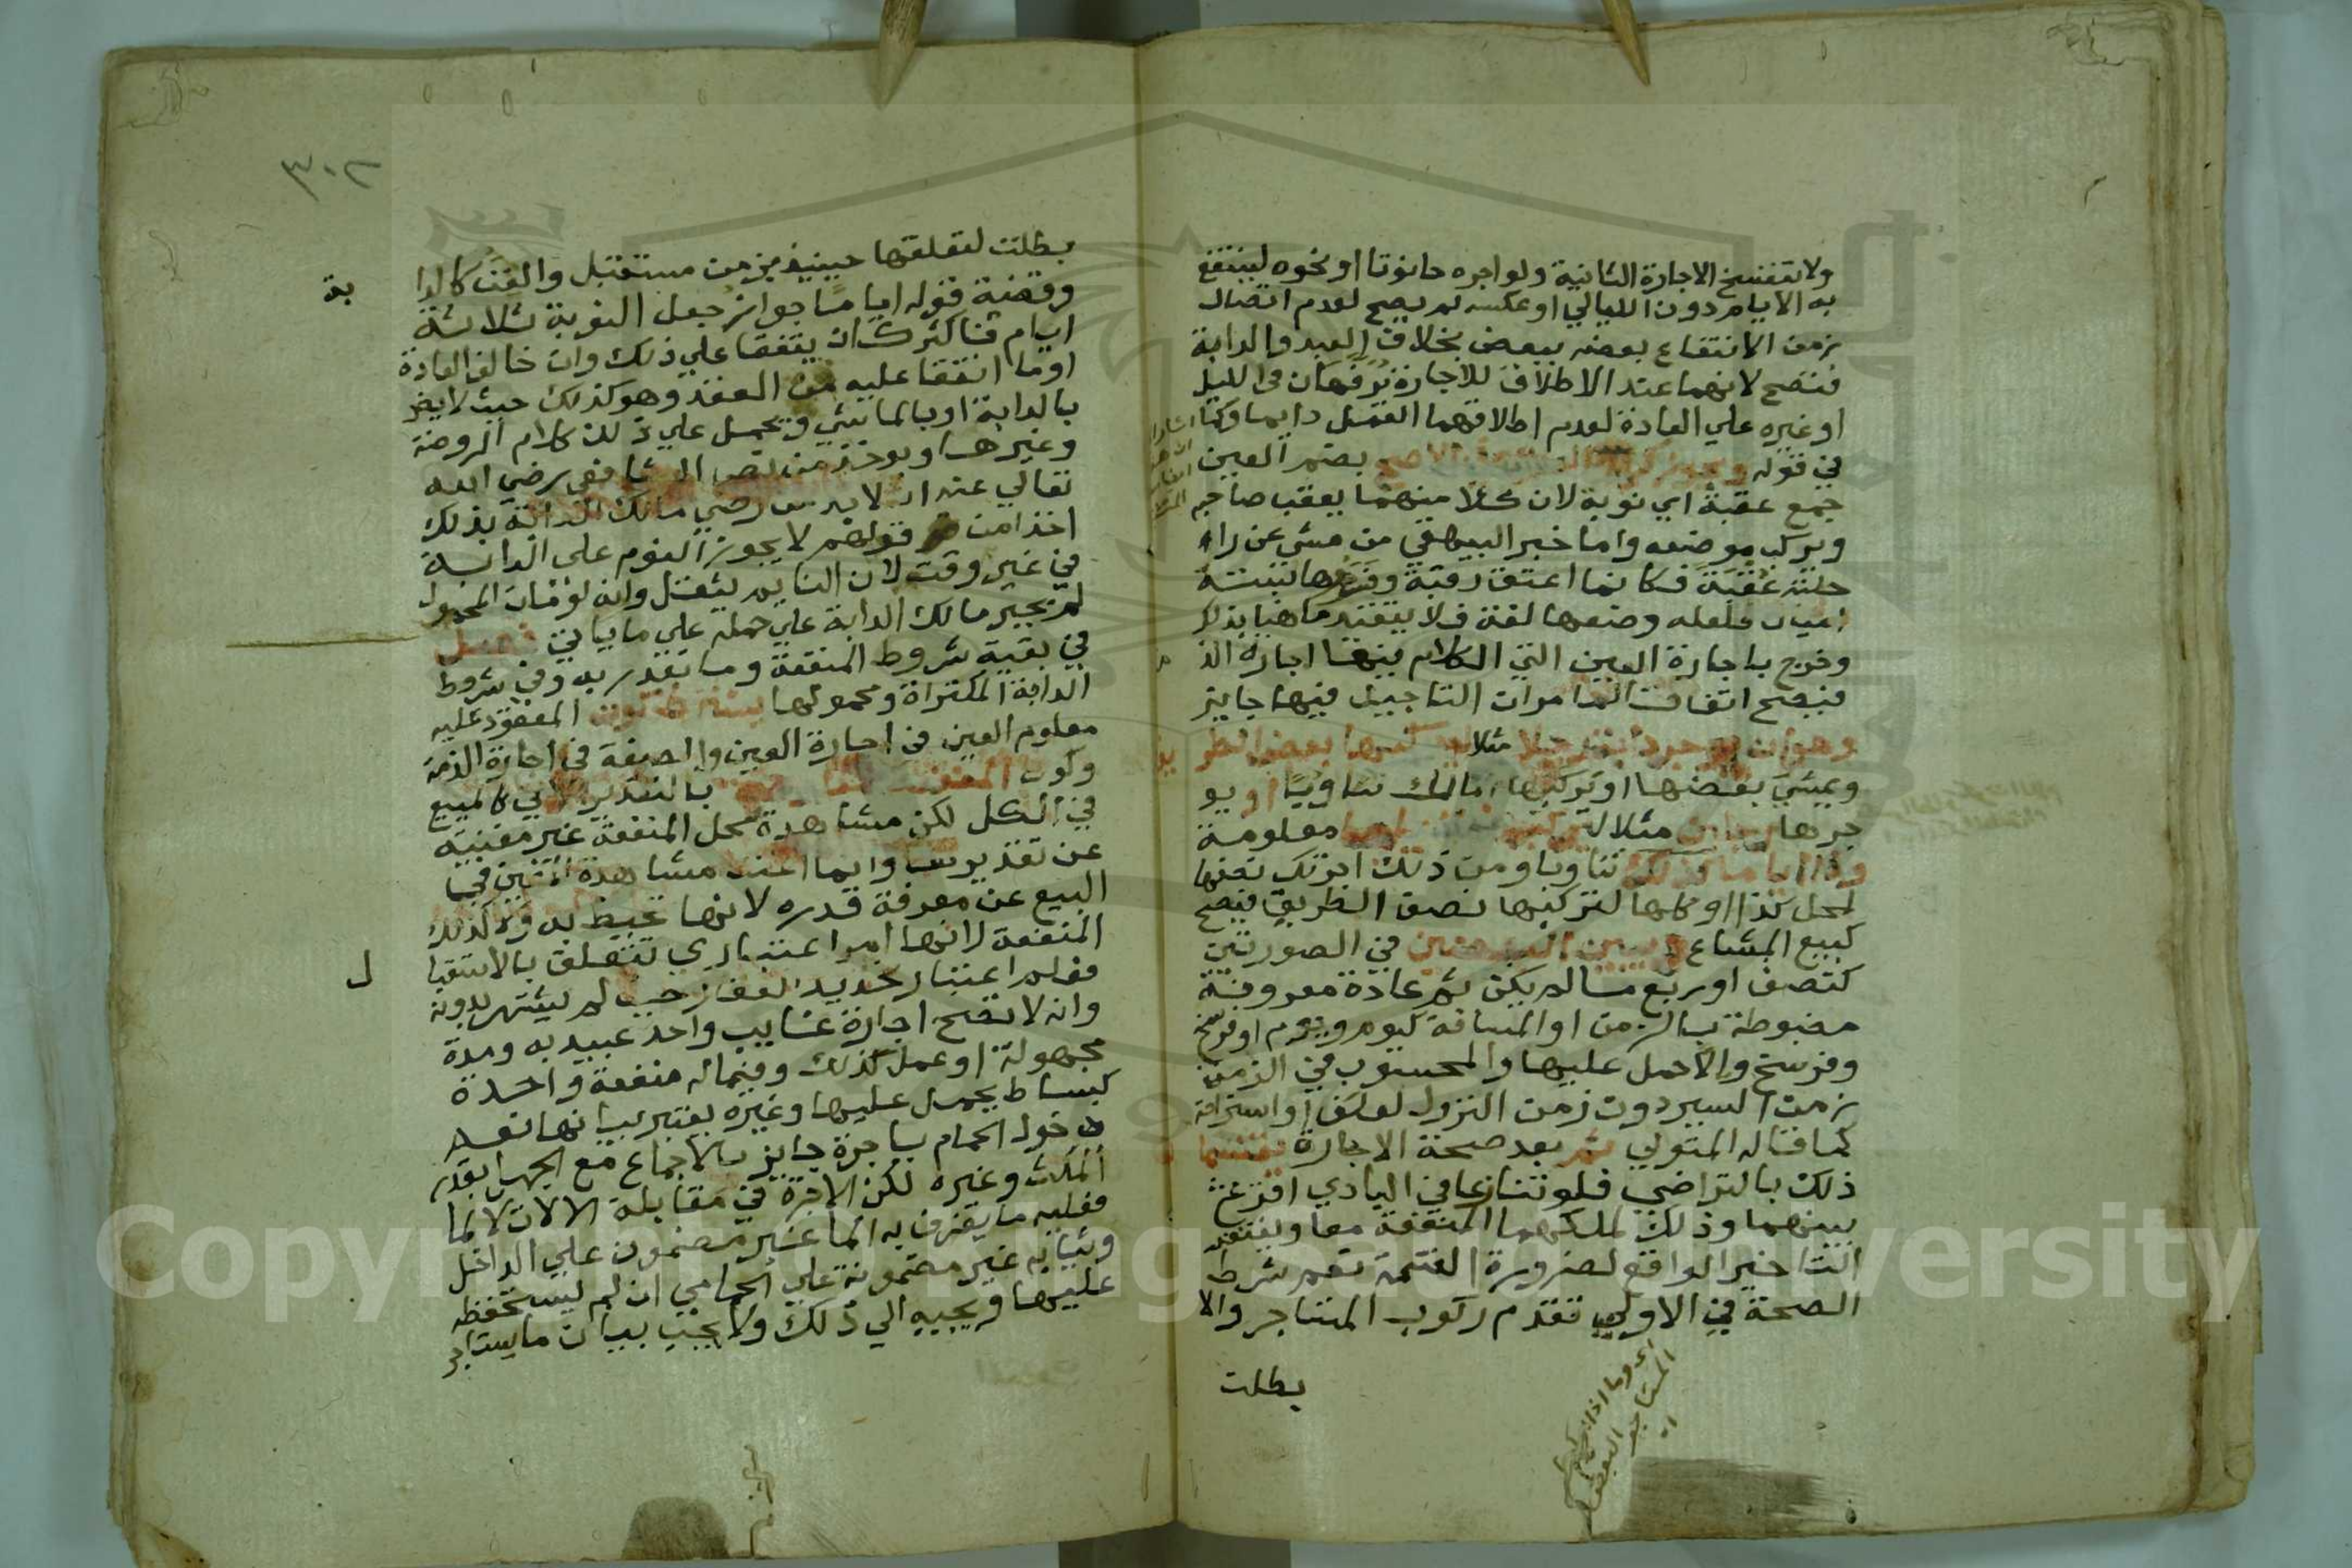 ولا تنفسخ الاجارة الثانية ولو اجره حانوتا او نحوه لينتفع
به الايام دون الليالي او عكسه لم يصح لعدم اتصال
زمن الانتفاع بعضه ببعض بخلاف العبد والدابة
فتصح لانهما عند الاطلاق للاجارة يرفهان في الليل
او غيره علي العادة لعدم اطاقتهما العمل دايما وكما اشار
في قوله ويجوز كراء العقب في الاصح بضم العين
جمع عقبة اي نوبة لان كلا منهما يعقب صاحبه
ويركب موضعه واما خبر البيهقي من مشي عن راحلته
عقبة فكانما اعتق رقبة وفسرها بستة
اميال فلعله وضعها لغة فلا يتقيد ما هنا بذلك
وخرج باجارة العين التي الكلام فيها اجارة الذمة
فتصح اتفاقا لما مر ان التاجيل فيها جايز
وهو ان يوجر دابة رجلا مثلا ليركبها بعض الطريق
ويمشي بعضها او يركبها المالك تناوبا او يو
جرها رجلين مثلا ليركب معلومة
وذا اياما كذلك تناوبا ومن ذلك اجرتك نصفها
لمحل كذا او كلها لتركبها نصف الطريق فيصح
كبيع المشاع ويبين البعضين في الصورتين
كنصف او ربع ما لم يكن ثم عادة معروفة
مضبوطة بالزمن او المسافة كيوم ويوم او فرسخ
وفرسخ والا حمل عليها والمحسوب في الزمن
زمن السير دون زمن النزول لعلف او استراحة
كما قاله المتولي ثم بعد صحة الاجارة يقتسمان
ذلك بالتراضي فلو تنازعا في البادي اقرع
بينهما وذلك لملكهما المنفعة معا ويغتفر
التاخير الواقع لضرورة القسمة نعم شرط
الصحة في الاولي تقدم ركوب المستاجر والا
بطلت
٣٠٢
بطلت لتعلقها حينيذ بزمن مستقبل والقن كالدابة
وقضية قوله اياما جواز جعل النوبة ثلاثة
ايام فاكثر كان يتفقا علي ذلك وان خالف العادة
او ما اتفقا عليه من العقد وهو كذلك حيث لا يضر
بالدابة او بالماشي ويحمل علي ذلك كلام الروضة
وغيرها ويوخذ من نص الشافعي رضي الله
تعالي عنه انه لا بد من رضي مالك الدابة بذلك
اخذا من قولهم لا يجوز النوم علي الدابة
في غير وقته لان النايم يثقل وانه لو مات المحمول
لم يجبر مالك الدابة علي حمله علي ما ياتي فصل
في بقية شروط المنفعة وما تقدر به وفي شروط
الدابة المكتراة ومحمولها يشترط كون المعقود عليه
معلوم العين في اجارة العين والصفة في اجارة الذمة
وكون المنفعة بالتقدير الاتي كالمبيع
في الكل لكن مشاهدة محل المنفعة غير مغنية
عن تقديرها وانما اغنت مشاهدة العين في
البيع عن معرفة قدره لانها تحيط به ولا كذلك
المنفعة لانها امر اعتباري تتعلق بالاستقبال
فعلم اعتبار تحديد العقار حيث لم يشتهر بدونه
وانه لا تصح اجارة غايب واحد عبيد به ومدة
مجهولة او عمل كذلك وفيما له منفعة واحدة
كبساط يحمل عليها وغيره يعتبر بيانها نعم
دخول الحمام باجرة جايز بالاجماع مع الجهل بقدر
المكث وغيره لكن الاجرة في مقابلة الالات لا الما
فعليه ما يغرف به الما غير مضمون علي الداخل
وثيابه غير مضمونة علي الحمامي ان لم يستحفظه
عليها ويجيبه الي ذلك ولا يجب بيان ما يستاجر
Copyright © King Saud University